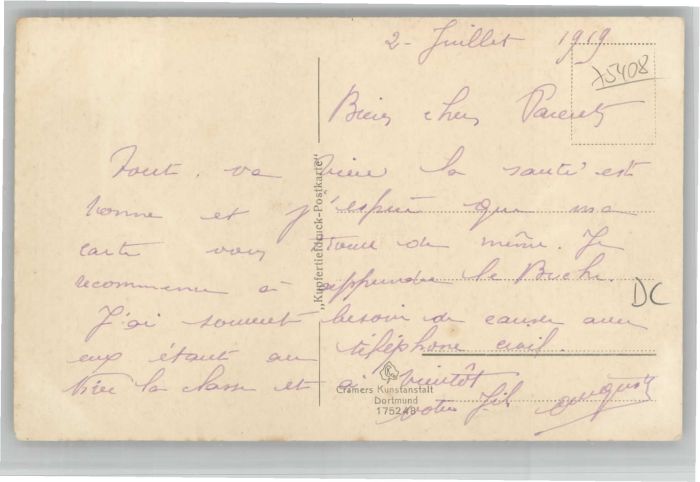 2 - Juillet 1919
75408
Bien chers Parents
Tout va bien la santé est
bonne et j'espère que ma
carte vous trouve de même. Je
recommence à apprendre le Boche.
J'ai souvent besoin de causer avec
eux étant au téléphone civil.
Vive la classe et à bientôt
votre fils Auguste
DC
„Kupfertiefdruck-Postkarte"
Cramers Kunstanstalt
Dortmund
175248